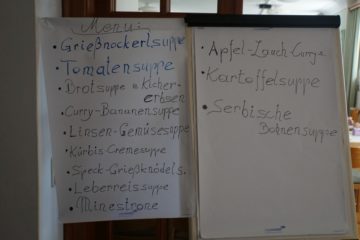 Menü:
• Grießnockerlsuppe
• Tomatensuppe
• Brotsuppe m Kicher-
erbsen
• Curry-Bananensuppe
• Linsen-Gemüsesuppe
• Kürbis-Cremesuppe
• Speck-Grießknödels.
• Leberreissuppe
• Minestrone
• Apfel-Lauch-Curry s.
• Kartoffelsuppe
• Serbische
Bohnensuppe